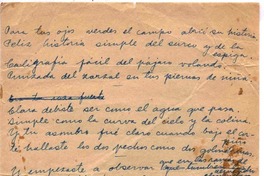 Para tus ojos verdes el campo abrió su historia
Feliz historia simple del surco y de la espiga.
Caligrafía fácil del pájaro volando.
Cruzada del zarzal en tus piernas de niña.
Clara debiste ser como el agua que pasa.
Simple como la curva del cielo y la colina.
Y tu asombro fué claro cuando bajo el cor-
piño
te hallaste los dos pechos como dos golondrinas.
Y empezaste a observar